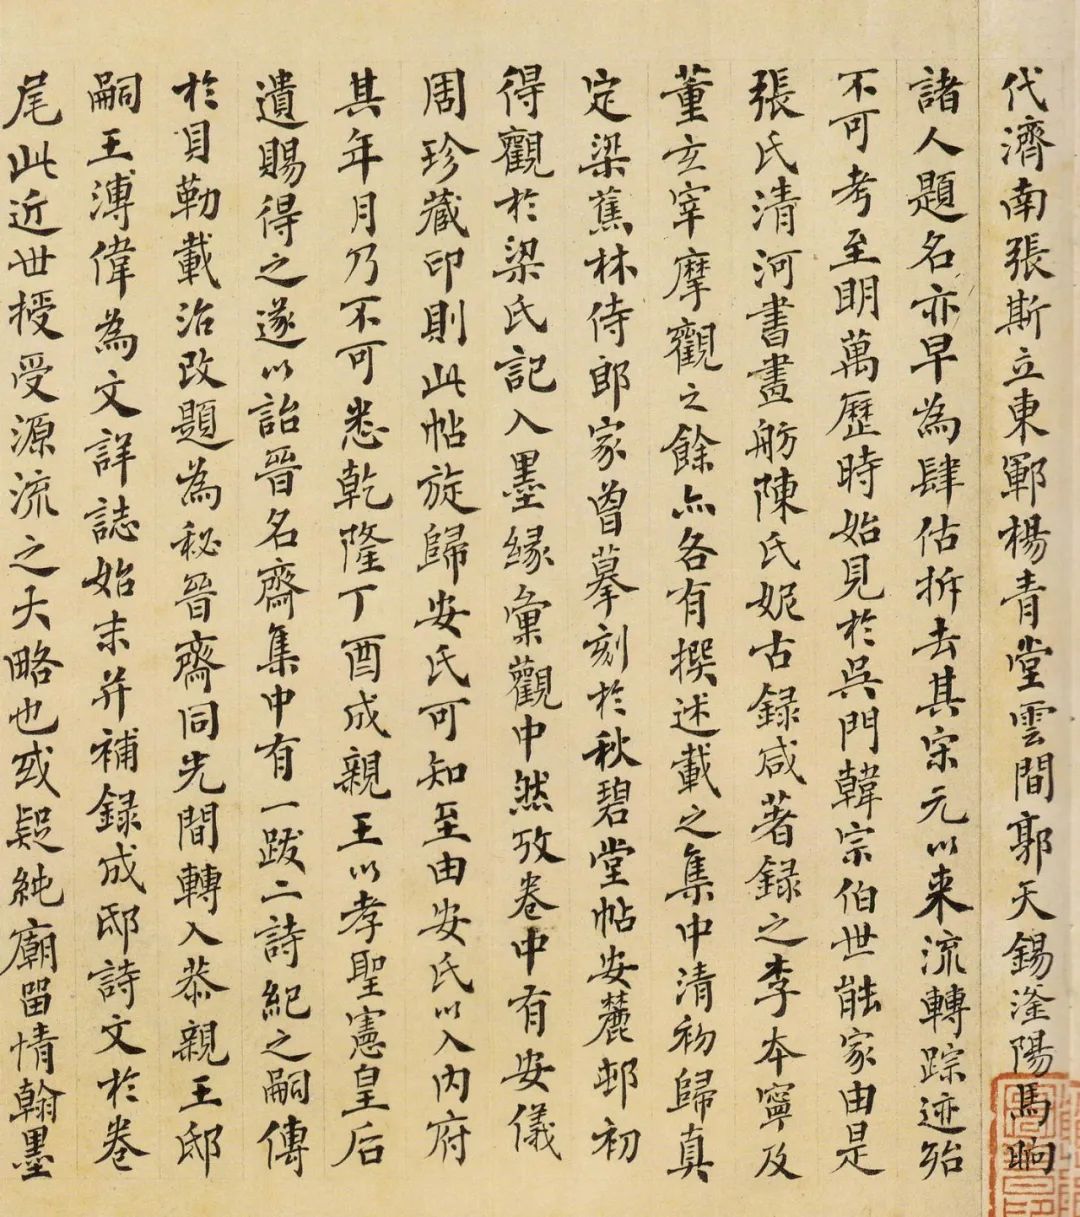 代濟南張斯立東鄆楊青堂雲間郭天錫滏陽馬晌
諸人題名亦早為肆估拆去其宋元以来流轉踪迹殆
不可考至明萬歷時始見於吳門韓宗伯世能家由是
張氏清河書畫舫陳氏妮古録咸著録之李本寧及
董玄宰摩觀之餘亦各有撰述載之集中清初歸真
定梁蕉林侍郎家曾摹刻於秋碧堂帖安麓邨初
得觀於梁氏記入墨緣彙觀中然攷卷中有安儀
周珍藏印則此帖旋歸安氏可知至由安氏以入內府
其年月乃不可悉乾隆丁酉成親王以孝聖憲皇后
遺賜得之遂以詒晉名齋集中有一跋二詩紀之嗣傳
於貝勒載治改題為秘晉齋同光間轉入恭親王邸
嗣王溥偉為文詳誌始末并補録成邸詩文於卷
尾此近世授受源流之大略也或疑純廟留情翰墨